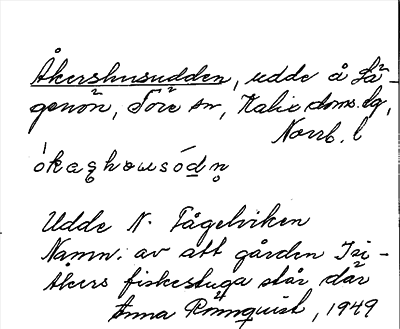 Åkershusudden, udde å Lå-
genön, Töre sn, Kalix doms.lg,
Norrb. l
Udde N. Tågelviken
Namn. av att gården
åkers fiskestuga står där
Anna Rönnquist, 1949